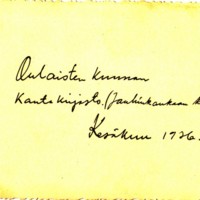 Oulaisten kunnan
Kantakirjasto. (Jauhinkankaan k
Kesäkuu 1926.